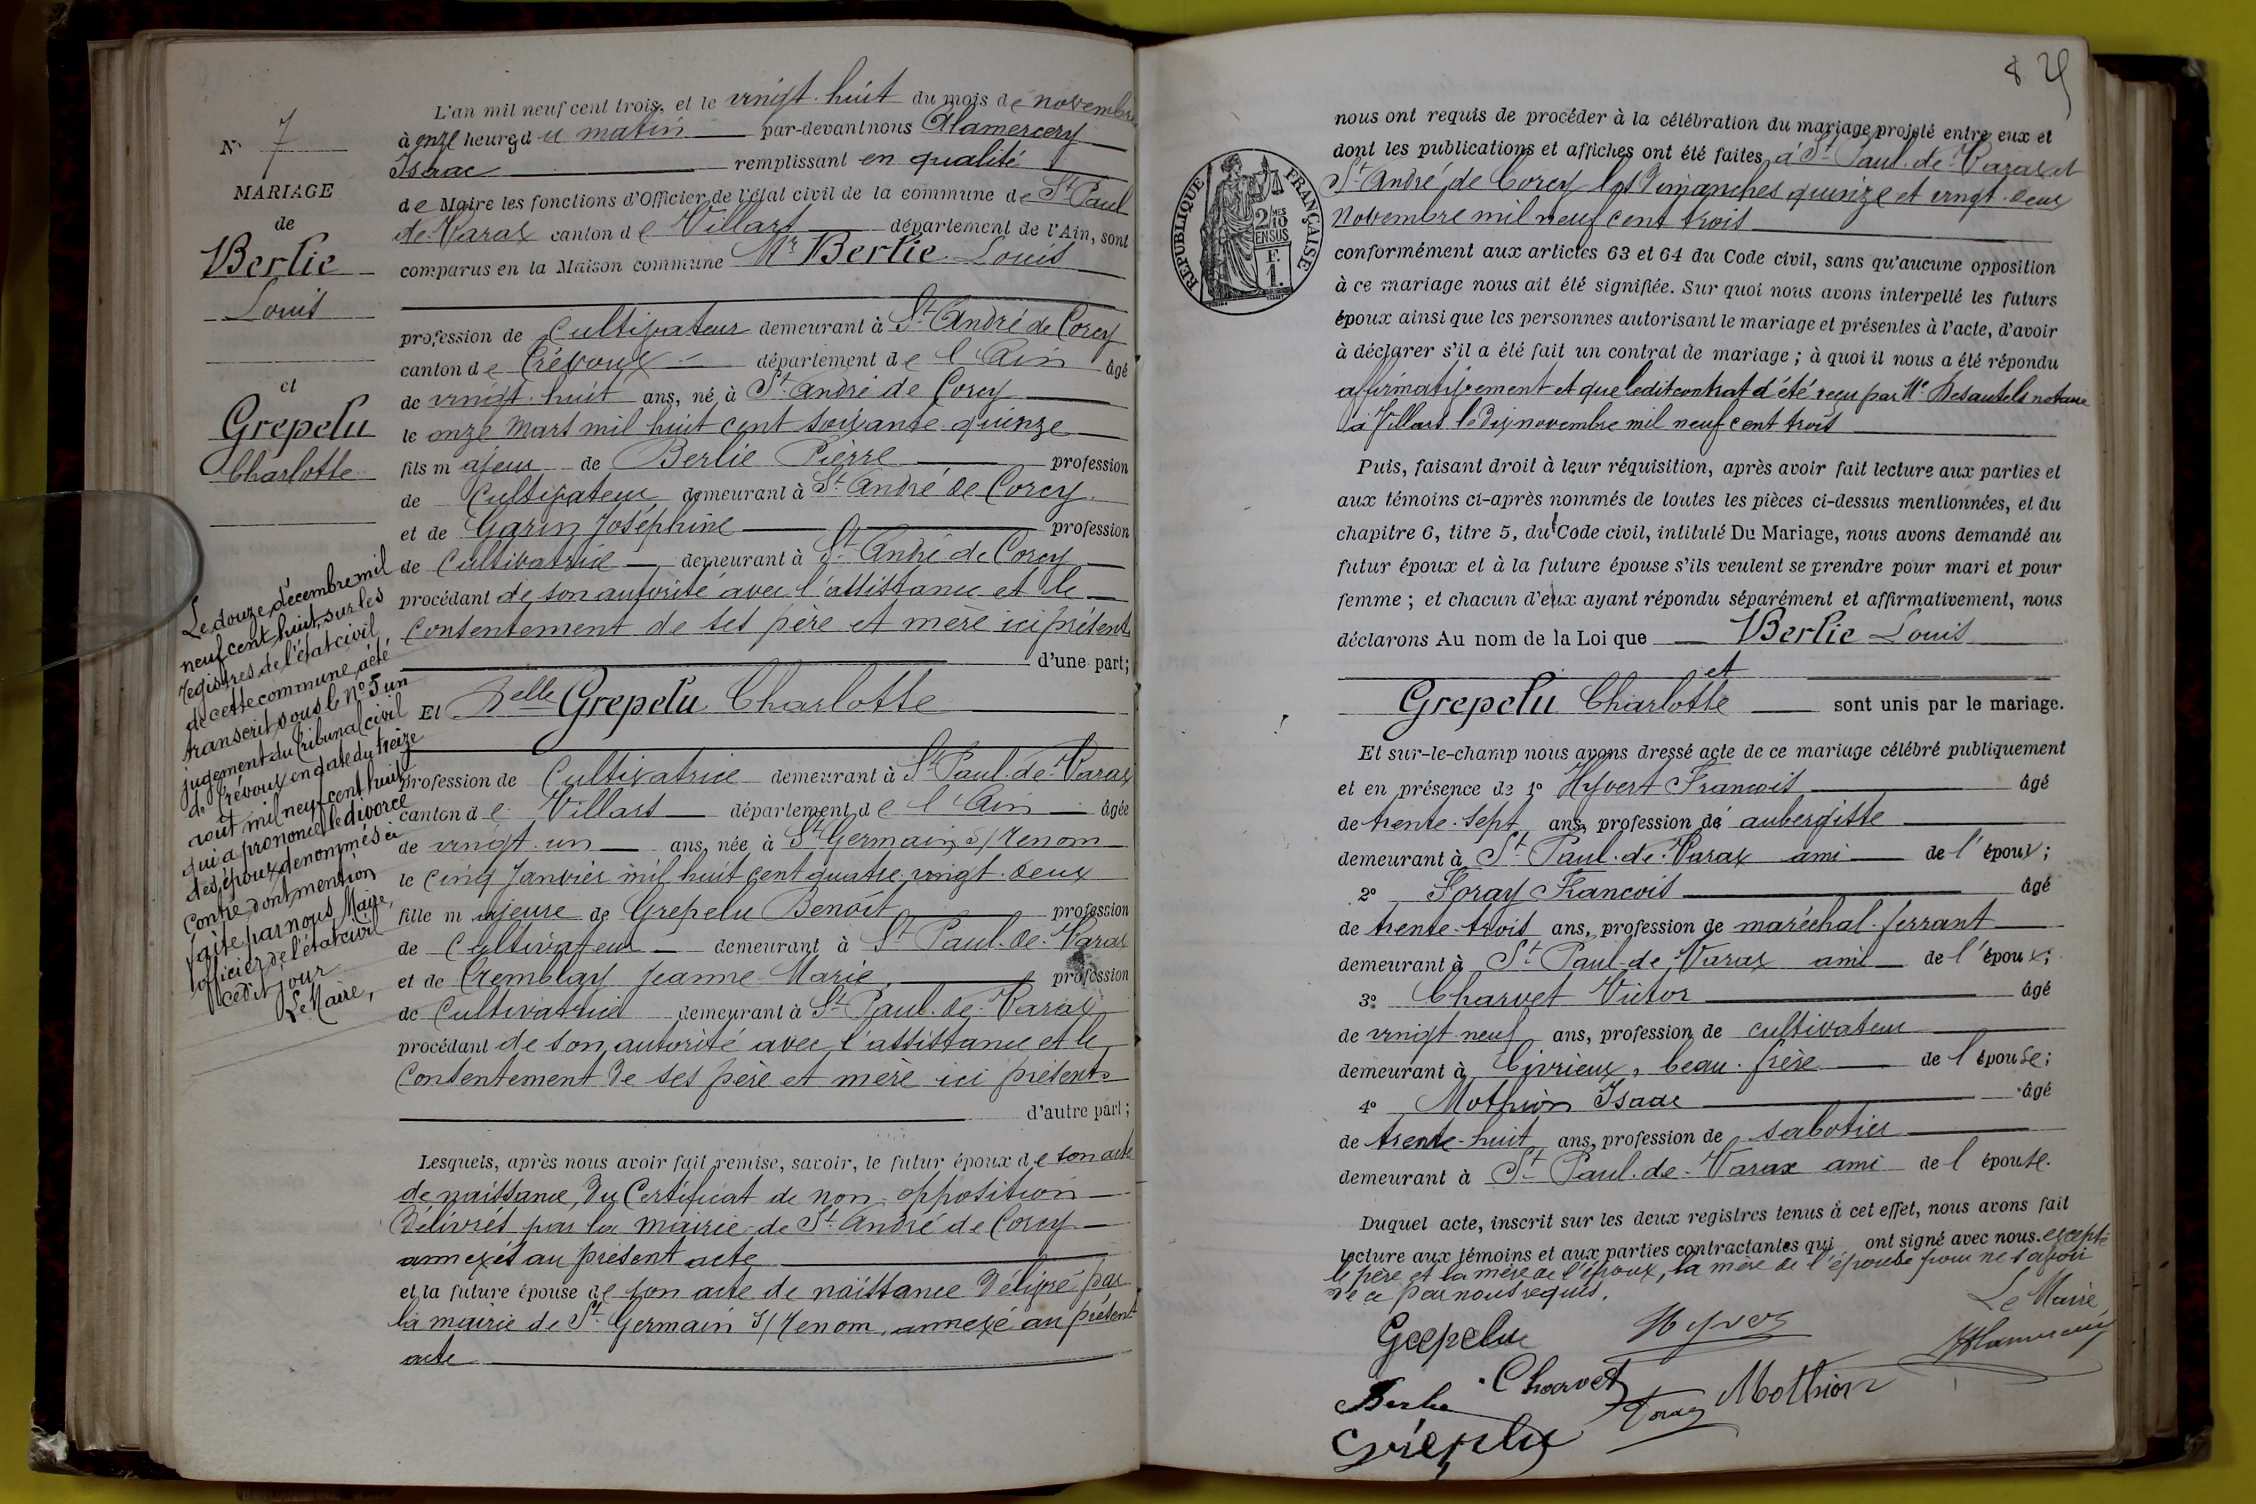 N° 7
MARIAGE
de
Berlie
Louis
et
Grepelu
Charlotte
Le douze décembre mil
neuf cent huit, sur les
registres de l'état civil
de cette commune, a été
transcrit sous le N° 5 un
jugement du tribunal civil
de Trévoux en date du treize
août mil neuf cent huit
qui a prononcé le divorce
des époux dénommés ci
contre dont mention
faite par nous Maire,
officier de l'état civil
ce dit jour
Le Maire,
L'an mil neuf cent trois, et le vingt-huit du mois de novembre
à onze heures du matin par-devant nous Alamercery
Isaac remplissant en qualité
de Maire les fonctions d'Officier de l'état civil de la commune de St Paul
de Varax canton de Villars département de l'Ain, sont
comparus en la Maison commune Mr Berlie Louis
profession de Cultivateur demeurant à St André de Corcy
canton de Trévoux département de l'Ain âgé
de vingt-huit ans, né à St André de Corcy
le onze Mars mil huit cent soixante-quinze
fils majeur de Berlie Pierre profession
de Cultivateur demeurant à St André de Corcy
et de Garin Joséphine profession
de Cultivatrice demeurant à St André de Corcy
procédant de son autorité avec l'assistance et le
Consentement de ses père et mère ici présents
d'une part;
Et Delle Grepelu Charlotte
profession de Cultivatrice demeurant à St Paul-de-Varax
canton de Villars département de l'Ain âgée
de vingt-un ans, née à St Germain s/ Renom
le cinq Janvier mil huit cent quatre-vingt-deux
fille majeure de Grepelu Benoît profession
de Cultivateur demeurant à St Paul-de-Varax
et de Tremblay Jeanne-Marie profession
de Cultivatrice demeurant à St Paul-de-Varax
procédant de son autorité avec l'assistance et le
Consentement de ses père et mère ici présents
d'autre part;
Lesquels, après nous avoir fait remise, savoir, le futur époux de son acte
de naissance, du Certificat de non-opposition
délivrés par la mairie de St André de Corcy
annexés au présent acte
et la future épouse de son acte de naissance délivré par
la mairie de St Germain s/ Renom, annexé au présent
acte
8 29
RÉPUBLIQUE FRANÇAISE
2/10 MES
EN SUS
F.
1.
nous ont requis de procéder à la célébration du mariage projeté entre eux et
dont les publications et affiches ont été faites à St Paul-de-Varax et
St André de Corcy les Dimanches quinze et vingt-deux
Novembre mil neuf cent trois
conformément aux articles 63 et 64 du Code civil, sans qu'aucune opposition
à ce mariage nous ait été signifiée. Sur quoi nous avons interpellé les futurs
époux ainsi que les personnes autorisant le mariage et présentes à l'acte, d'avoir
à déclarer s'il a été fait un contrat de mariage ; à quoi il nous a été répondu
affirmativement et que ledit contrat a été reçu par Me Desautels notaire
à Villars le dix novembre mil neuf cent trois
Puis, faisant droit à leur réquisition, après avoir fait lecture aux parties et
aux témoins ci-après nommés de toutes les pièces ci-dessus mentionnées, et du
chapitre 6, titre 5, du Code civil, intitulé Du Mariage, nous avons demandé au
futur époux et à la future épouse s'ils veulent se prendre pour mari et pour
femme ; et chacun d'eux ayant répondu séparément et affirmativement, nous
déclarons Au nom de la Loi que Berlie Louis
et
Grepelu Charlotte sont unis par le mariage.
Et sur-le-champ nous avons dressé acte de ce mariage célébré publiquement
et en présence de 1° Hyvert François âgé
de trente-sept ans, profession de aubergiste
demeurant à St Paul-de-Varax ami de l'époux;
2° Foray François âgé
de trente-trois ans, profession de maréchal-ferrant
demeurant à St Paul-de-Varax ami de l'époux;
3° Charvet Victor âgé
de vingt-neuf ans, profession de cultivateur
demeurant à Civrieux, beau-frère de l'épouse;
4° Mothion Isaac âgé
de trente-huit ans, profession de sabotier
demeurant à St Paul-de-Varax ami de l'épouse.
Duquel acte, inscrit sur les deux registres tenus à cet effet, nous avons fait
lecture aux témoins et aux parties contractantes qui ont signé avec nous. excepté
le père et la mère de l'époux, la mère de l'épouse pour ne savoir
de ce par nous requis.
Le Maire,
Grepelu Hyvert Alamercery
Berlie Charvet Foray Mothion
Grépelu